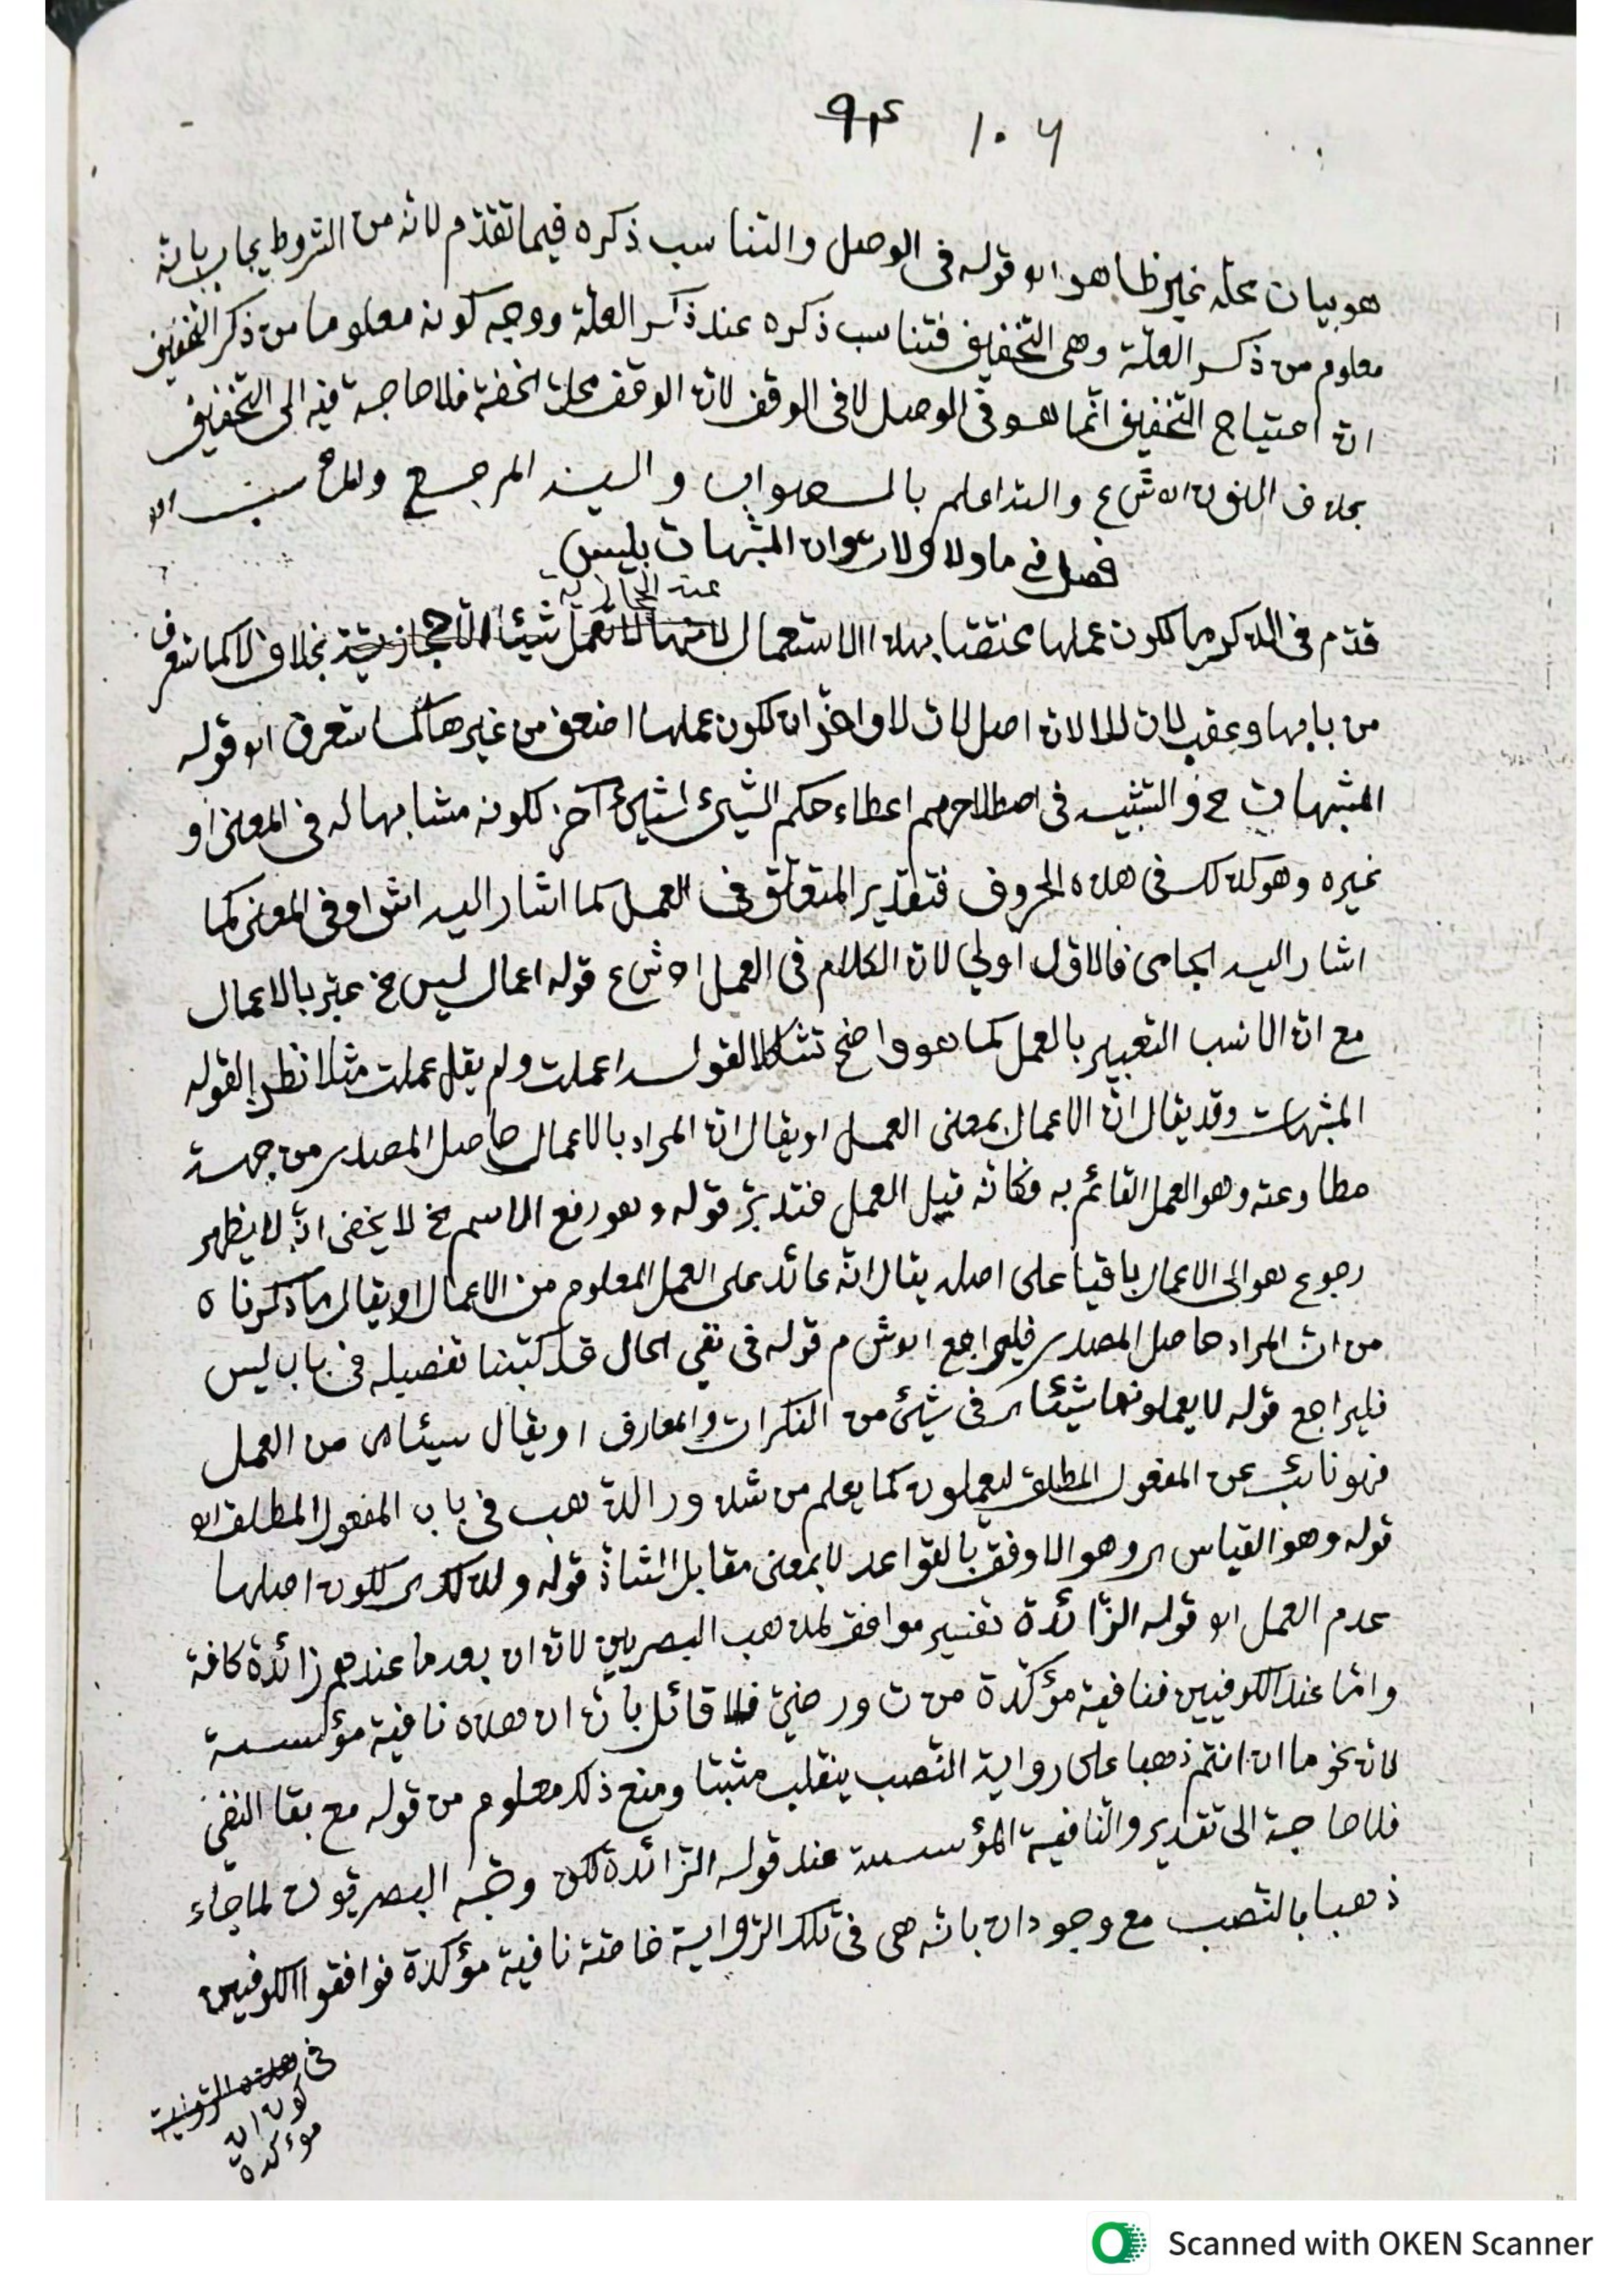 ٩٣ ١٠٦
هو بيان محله غير ظاهر اه قوله فى الوصل والتناسب ذكره فيما تقدّم لانّه من الشروط يجاب بانّه
معلوم من ذكر العلّة وهى التخفيف فتناسب ذكره عند ذكر العلّة ووجه كونه معلوما من ذكر التخفيف
انّ احتياج التخفيف انّما هو فى الوصل لا فى الوقف لانّ الوقف محلّ الخفّة فلا حاجة فيه الى التخفيف
بخلاف النون اه ش ع والله اعلم بالصواب واليه المرجع والمآب اه
فصل فى ما ولا ولات وان المشبهات بليس
عند الحجازية
قدّم فى الذكر ما لكون عملها محققا بهذا الاستعمال لانها لا تعمل شيئا الا حجازية بخلاف لا كما ستعرف
من بابها وعقب لات للا لانّ اصل لات لا واخّر ان لكون عملها اضعف من غيرها كما ستعرف اه قوله
المشبهات الخ والتشبيه فى اصطلاحهم اعطاء حكم الشيئ لشيئ آخر لكونه مشابها له فى المعنى او
غيره وهو كذلك فى هذه الحروف فتقدير المتعلّق فى العمل كما اشار اليه الش او فى المعنى كما
اشار اليه الجامى فالاوّل اولى لانّ الكلام فى العمل اه ش ع قوله اعمال ليس الخ عبّر بالاعمال
مع انّ الانسب التعبير بالعمل كما هو واضح تشاكلا لقوله اعملت ولم يقل عملت مثلا نظرا لقوله
المشبهات وقد يقال انّ الاعمال بمعنى العمل او يقال انّ المراد بالاعمال حاصل المصدر من جهة
مطاوعته وهو العمل القائم به فكانّه قيل العمل فتدبّر قوله وهو رفع الاسم الخ لا يخفى انّه لا يظهر
رجوع هو الى الاعمال باقيا على اصله يقال انّه عائد على العمل المعلوم من الاعمال او يقال ما ذكرناه
من انّ المراد حاصل المصدر فليراجع اه ش م قوله فى نفى الحال قد كتبنا تفصيله فى باب ليس
فليراجع قوله لا يعملونها شيئا اى فى شيئ من النكرات والمعارف او يقال شيئا اى من العمل
فهو نائب عن المفعول المطلق ليعملون كما يعلم من شذور الذهب فى باب المفعول المطلق اه
قوله وهو القياس اى وهو الاوفق بالقواعد لا بمعنى مقابل الشاذ قوله ولذلك اى لكون اصلها
عدم العمل اه قوله الزّائدة تفسير موافق لمذهب البصريين لانّ ان بعد ما عندهم زائدة كافة
وامّا عند الكوفيين فنافية مؤكّدة من ت ور ضيّ فلا قائل بانّ ان هذه نافية مؤسسة
لانّ نحو ما ان انتم ذهبا على رواية النّصب ينقلب مثبتا ومنع ذلك معلوم من قوله مع بقا النفى
فلا حاجة الى تقدير والنافية المؤسسة عند قوله الزّائدة لكن وجّه البصريّون لما جاء
ذهبا بالنّصب مع وجود ان بانّه هى فى تلك الرّواية خاصّة نافية مؤكدة فوافقوا الكوفيين
فى هذه الرّواية
كون ان
مؤكدة
Scanned with OKEN Scanner